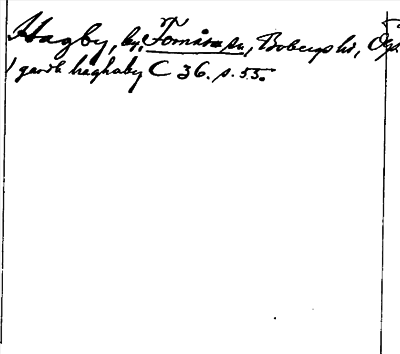 Hagby, by, Fornåsa sn, Bobergs hd, Ög.
1 gardh haghaby C 36. s. 53.